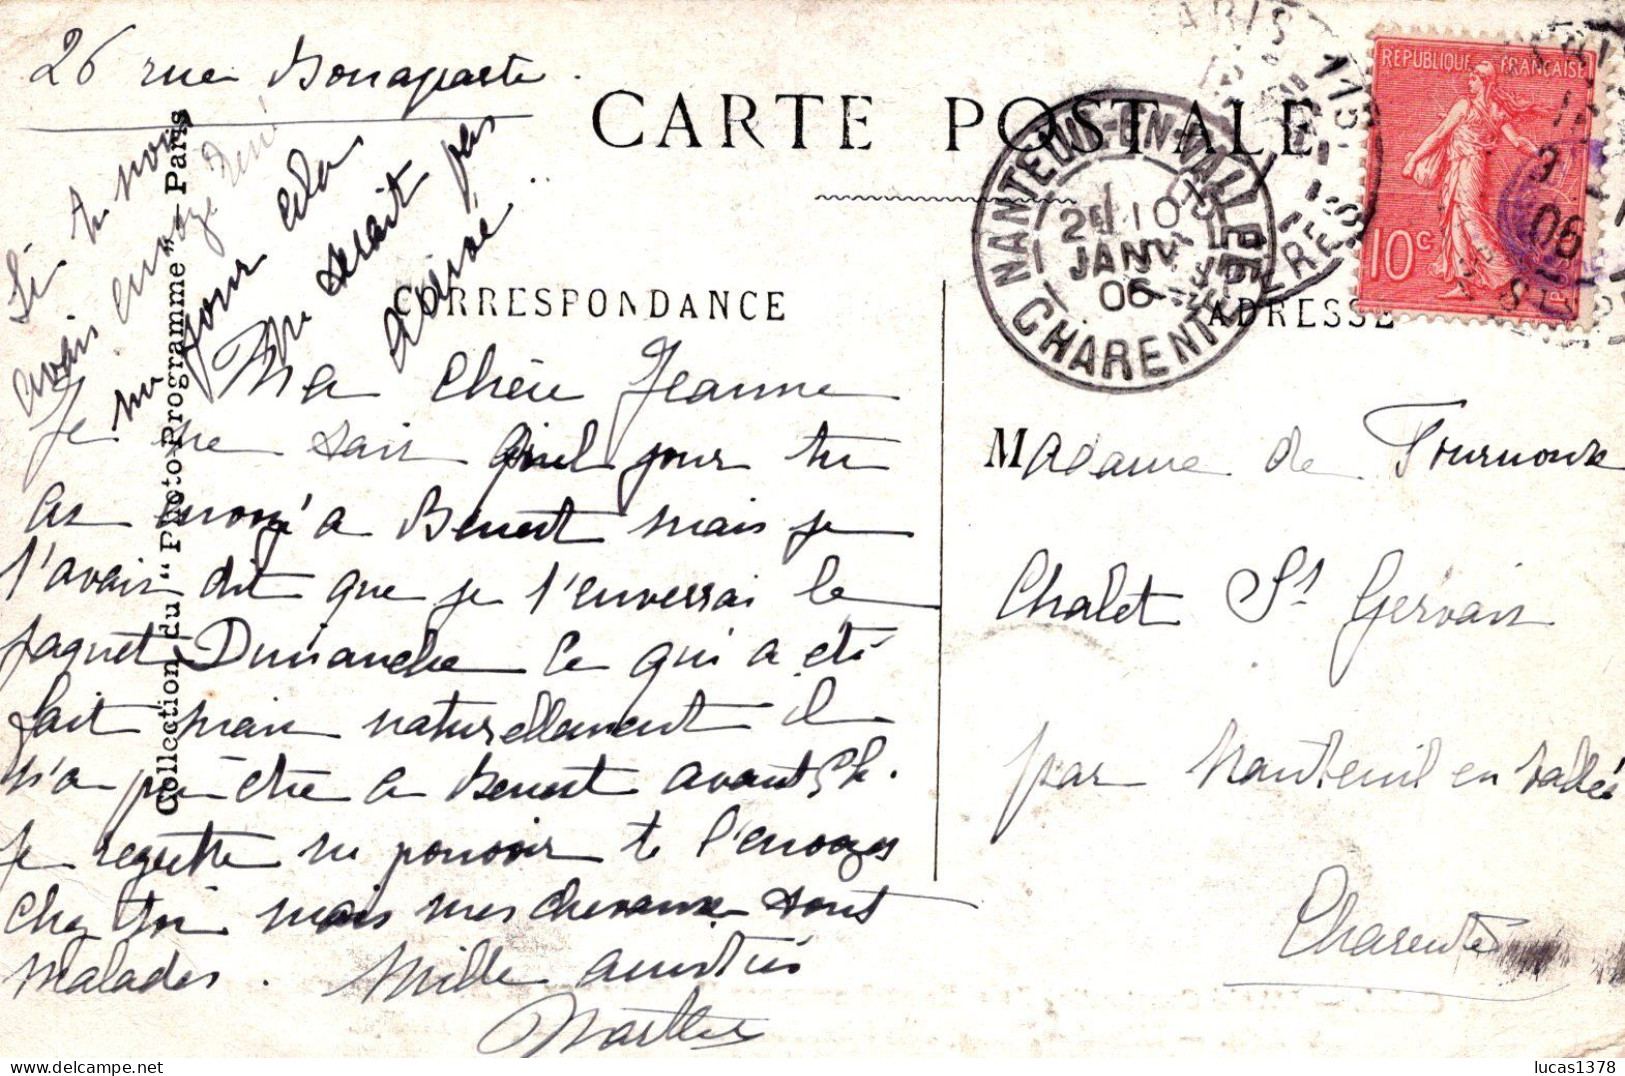 26 rue Bonaparte.
CARTE POSTALE
Si tu nous
avais envoyé
un jour
cela
ne serait pas
arrivé
CORRESPONDANCE
ADRESSE
Ma Chère Jeanne
Je ne sais quel jour tu
as envoyé a Benest mais je
t'avais dit que je t'enverrai le
paquet Dimanche ce qui a été
fait mais naturellement il
n'a pu être a Benest avant 5h.
Je regrette ne pouvoir te l'envoyer
chez toi mais mes chevaux sont
Malades. Mille amitiés
Marthe
Madame de Tournoux
Chalet St Gervais
par Nanteuil en Vallée
Charente
Collection du "Photo-Programme" - Paris
NANTEUIL-EN-VALLÉE
2E 10
JANV
06
CHARENTE
REPUBLIQUE FRANÇAISE
10c
POSTES
lucas1378